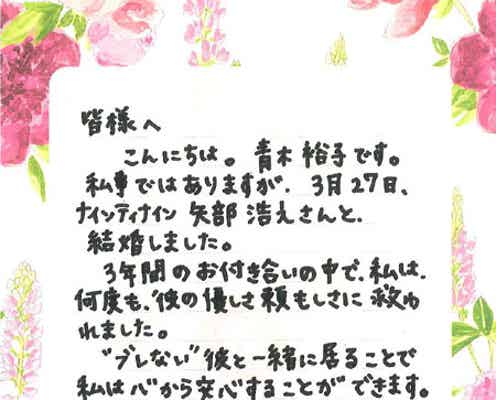 皆様へ
こんにちは。青木裕子です。
私事ではありますが、3月27日、
ナインティナイン 矢部 浩之さんと、
結婚しました。
3年間のお付き合いの中で、私は、
何度も、彼の優しさ頼もしさに救わ
れました。
"ブレない"彼と一緒に居ることで
私は心から安心することができます。